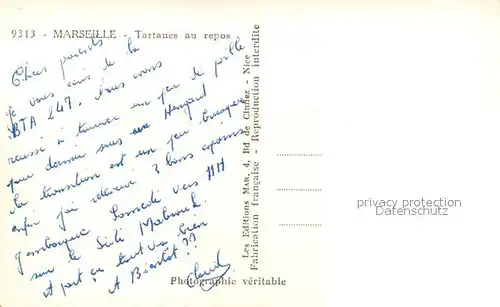 9313 - MARSEILLE - Tartanes au repos
Chers parents
je vous écris de la
BTA 247. Nous avons
réussi à trouver un peu de paille
pour dormir sous un Hangard
la transition est un peu brusque
enfin j'ai retrouvé 3 bons copains
J'embarque Samedi vers 11H
sur le Sidi Mabrouk.
A part ça tout va bien
A Bientot ??
Claude
Photographie véritable
Les Editions MAR, 4, Bd de Cimiez - Nice
Fabrication française - Reproduction interdite
privacy protection
DatenSchutz